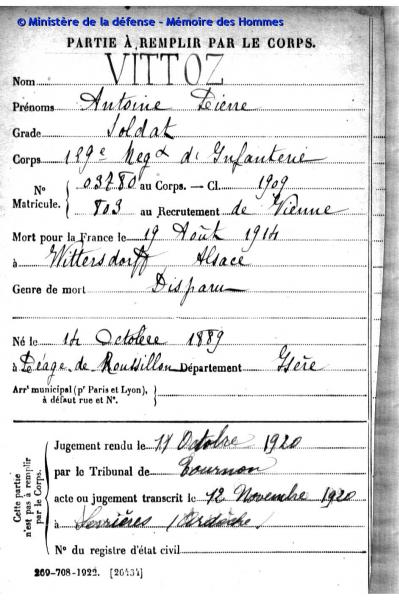 © Ministère de la défense - Mémoire des Hommes
PARTIE À REMPLIR PAR LE CORPS.
Nom VITTOZ
Prénoms Antoine Pierre
Grade Soldat
Corps 159e Regt d'Infanterie
N° Matricule. { 03780 au Corps. — Cl. 1909
803 au Recrutement de Vienne
Mort pour la France le 19 Août 1914
à Wittersdorff Alsace
Genre de mort Disparu
Né le 14 Octobre 1889
à Péage de Roussillon Département Isère
Arrt municipal (pr Paris et Lyon), à défaut rue et N°. {
Cette partie n'est pas à remplir par le Corps. {
Jugement rendu le 17 Octobre 1920
par le Tribunal de Tournon
acte ou jugement transcrit le 12 Novembre 1920
à Serrières (Ardèche)
N° du registre d'état civil
269-708-1922. [26434]